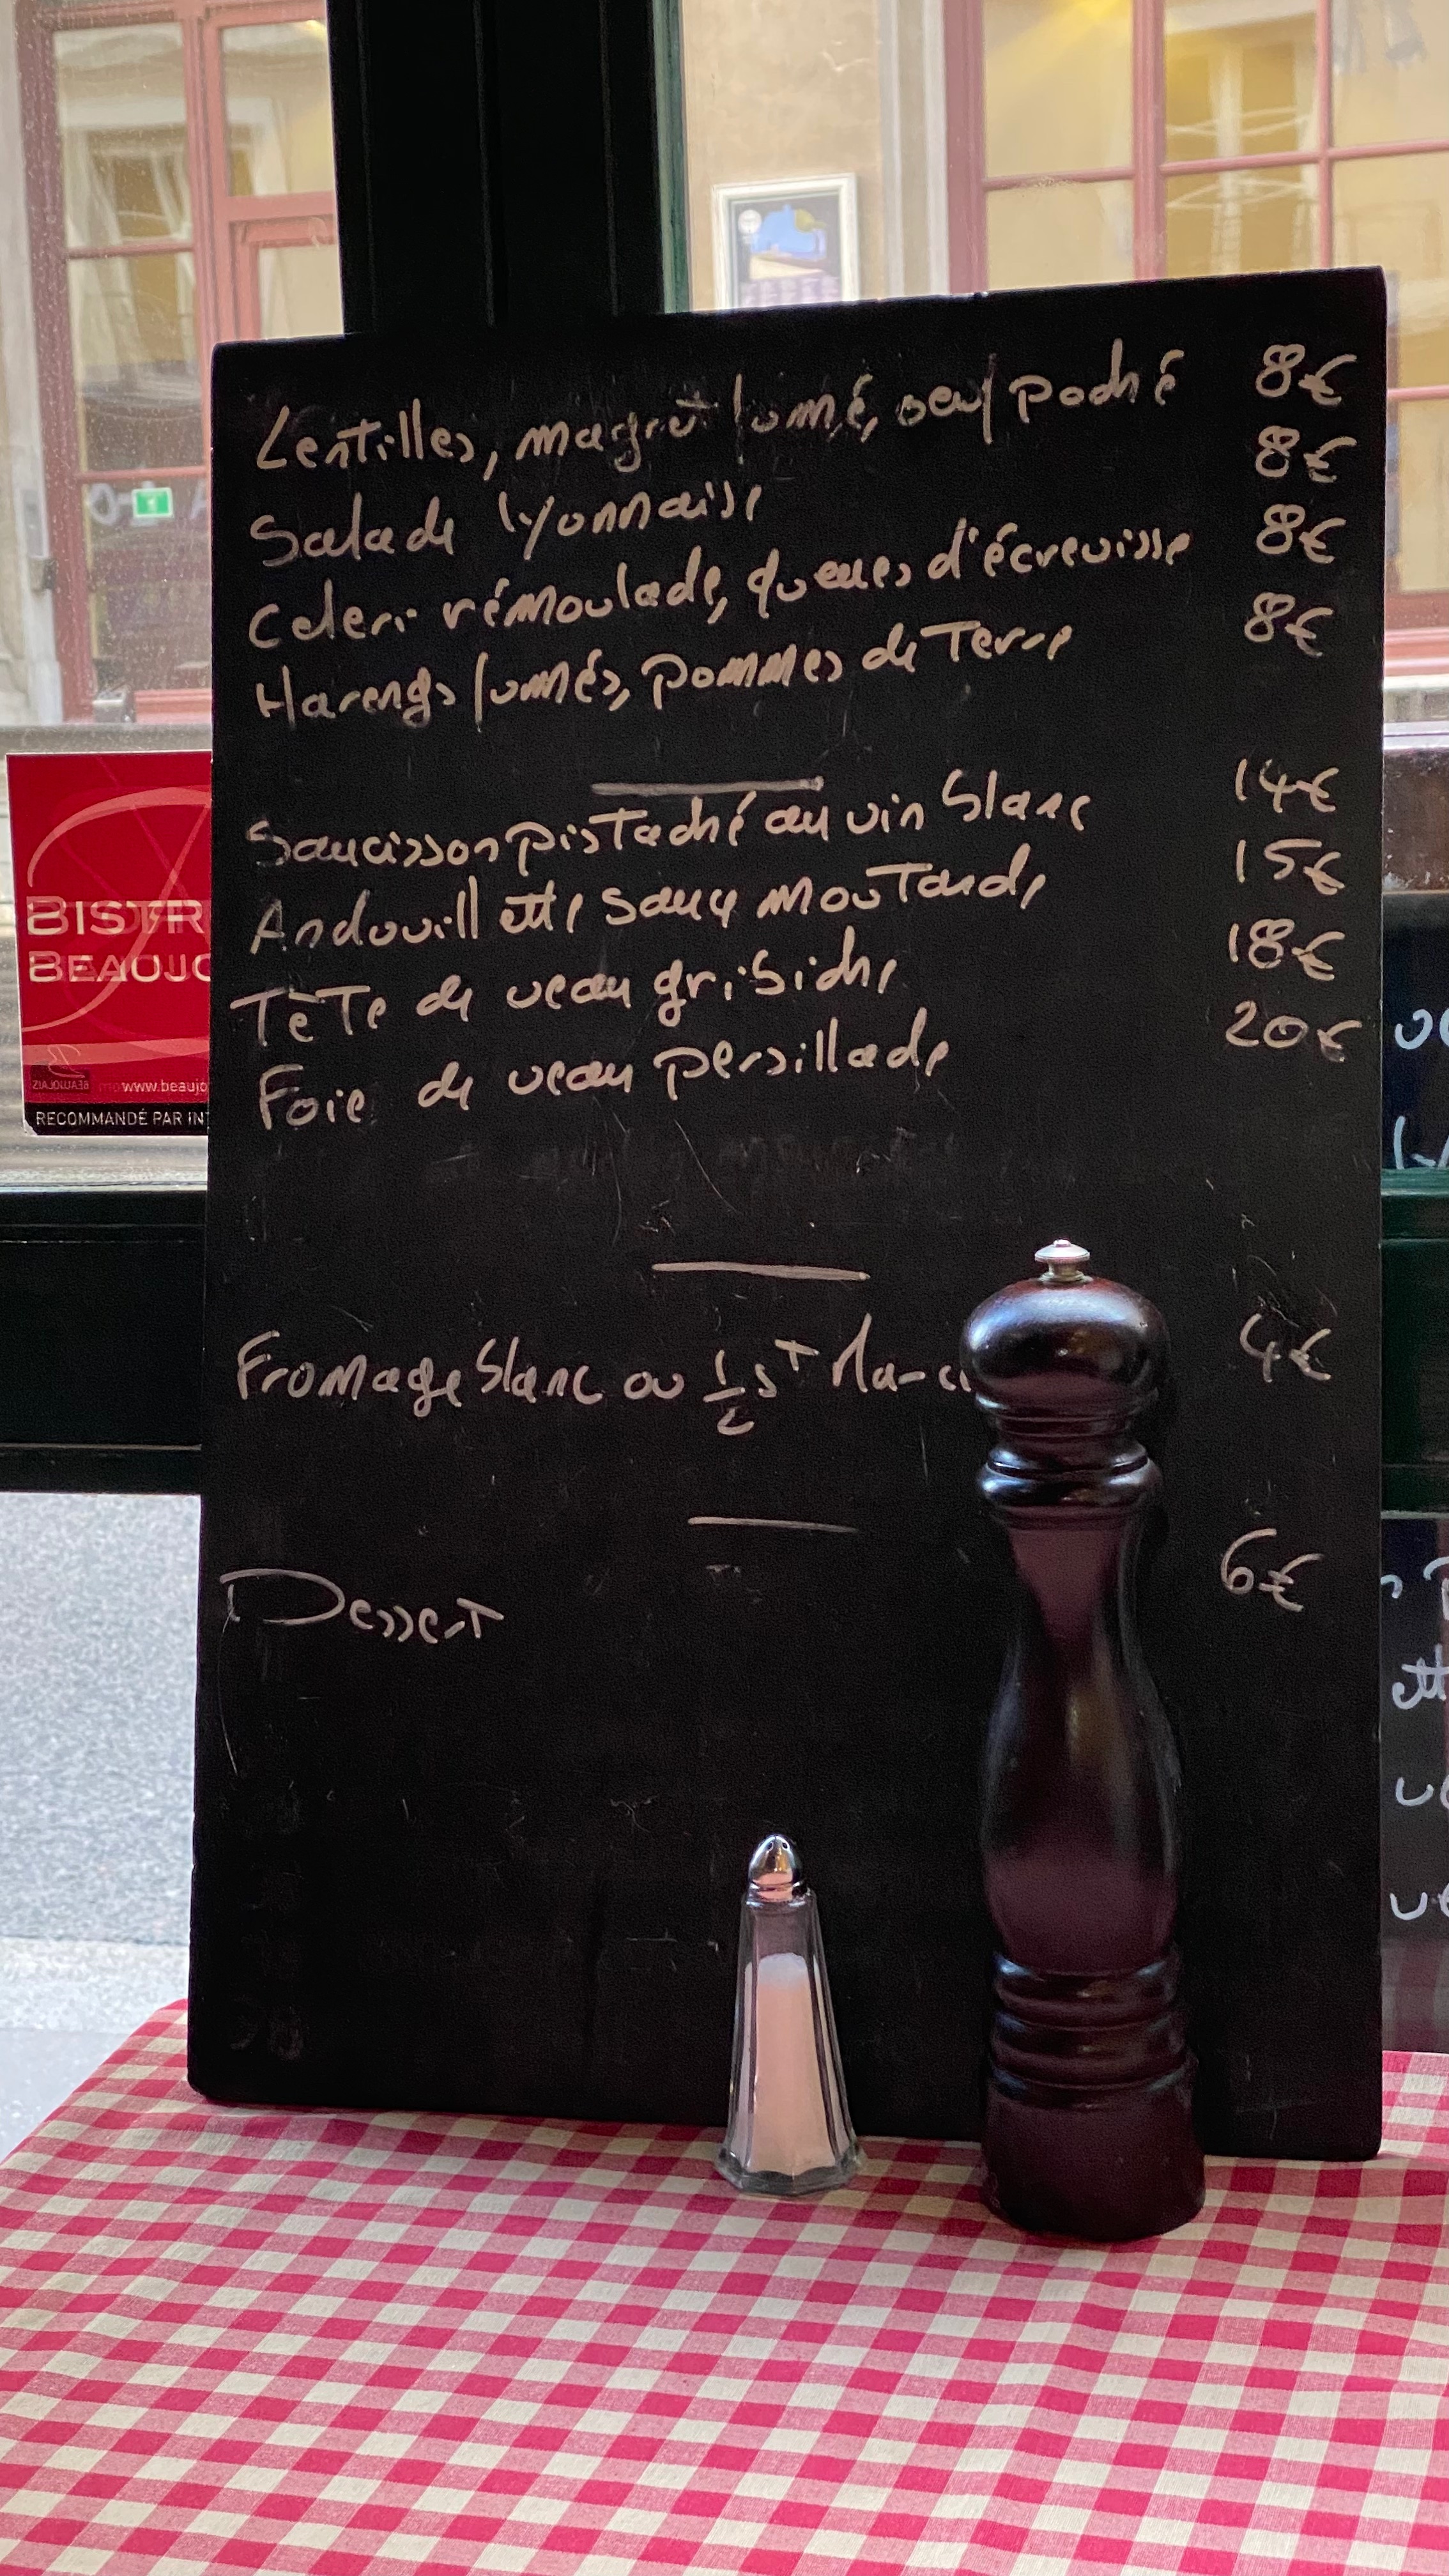 Lentilles, magret fumé, oeuf poché 8€
Salade lyonnaise 8€
Celeri rémoulade, queues d'écrevisse 8€
Harengs fumés, pommes de Terre 8€
Saucisson pistaché au vin blanc 14€
Andouillette sauce mouTarde 15€
TêTe de veau gribiche 18€
Foie de veau persillade 20€
Fromage blanc ou 1/2 sT Marce 4€
Dessert 6€
BISTR
BEAUJO
BEAUJOLAIS
www.beaujo
RECOMMANDÉ PAR INT